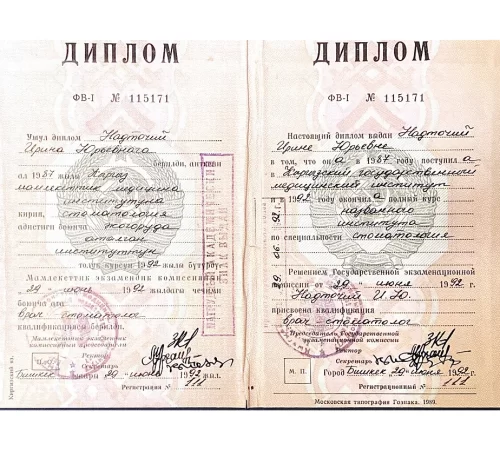 ДИПЛОМ
ФВ-I № 115171
Ушул диплом Надточий
Ирина Юрьевнага
берилди, анткени
ал 1987 жылы Кыргыз
мамлекеттик медицина
институтуна
кирип, стоматология
адистиги боюнча жогоруда
аталган
институттун
толук курсун 1992 жылы бүтүрдү
Мамлекеттик экзамендик комиссиянын
29 июнь 1992 жылдагы чечими
боюнча ага
врач-стоматолог
квалификациясы берилди.
Мамлекеттик экзамендик
комиссиянын председатели
Ректор
Секретарь
Бишкек шаары 29 июнь 1992 жыл.
Регистрация № 111
ДИПЛОМ
ФВ-I № 115171
Настоящий диплом выдан Надточий
Ирине Юрьевне
в том, что она в 1987 году поступила
в Кыргызский государственный
медицинский институт
и в 1992 году окончила полный курс
названного
института
по специальности стоматология
Решением Государственной экзаменационной
комиссии от 29 июня 1992 г.
Надточий И. Ю.
присвоена квалификация
врач-стоматолог
Председатель Государственной
экзаменационной комиссии
Ректор
Секретарь
М. П.
Город Бишкек "29" июня 1992 г.
Регистрационный № 111
Московская типография Гознака. 1989.